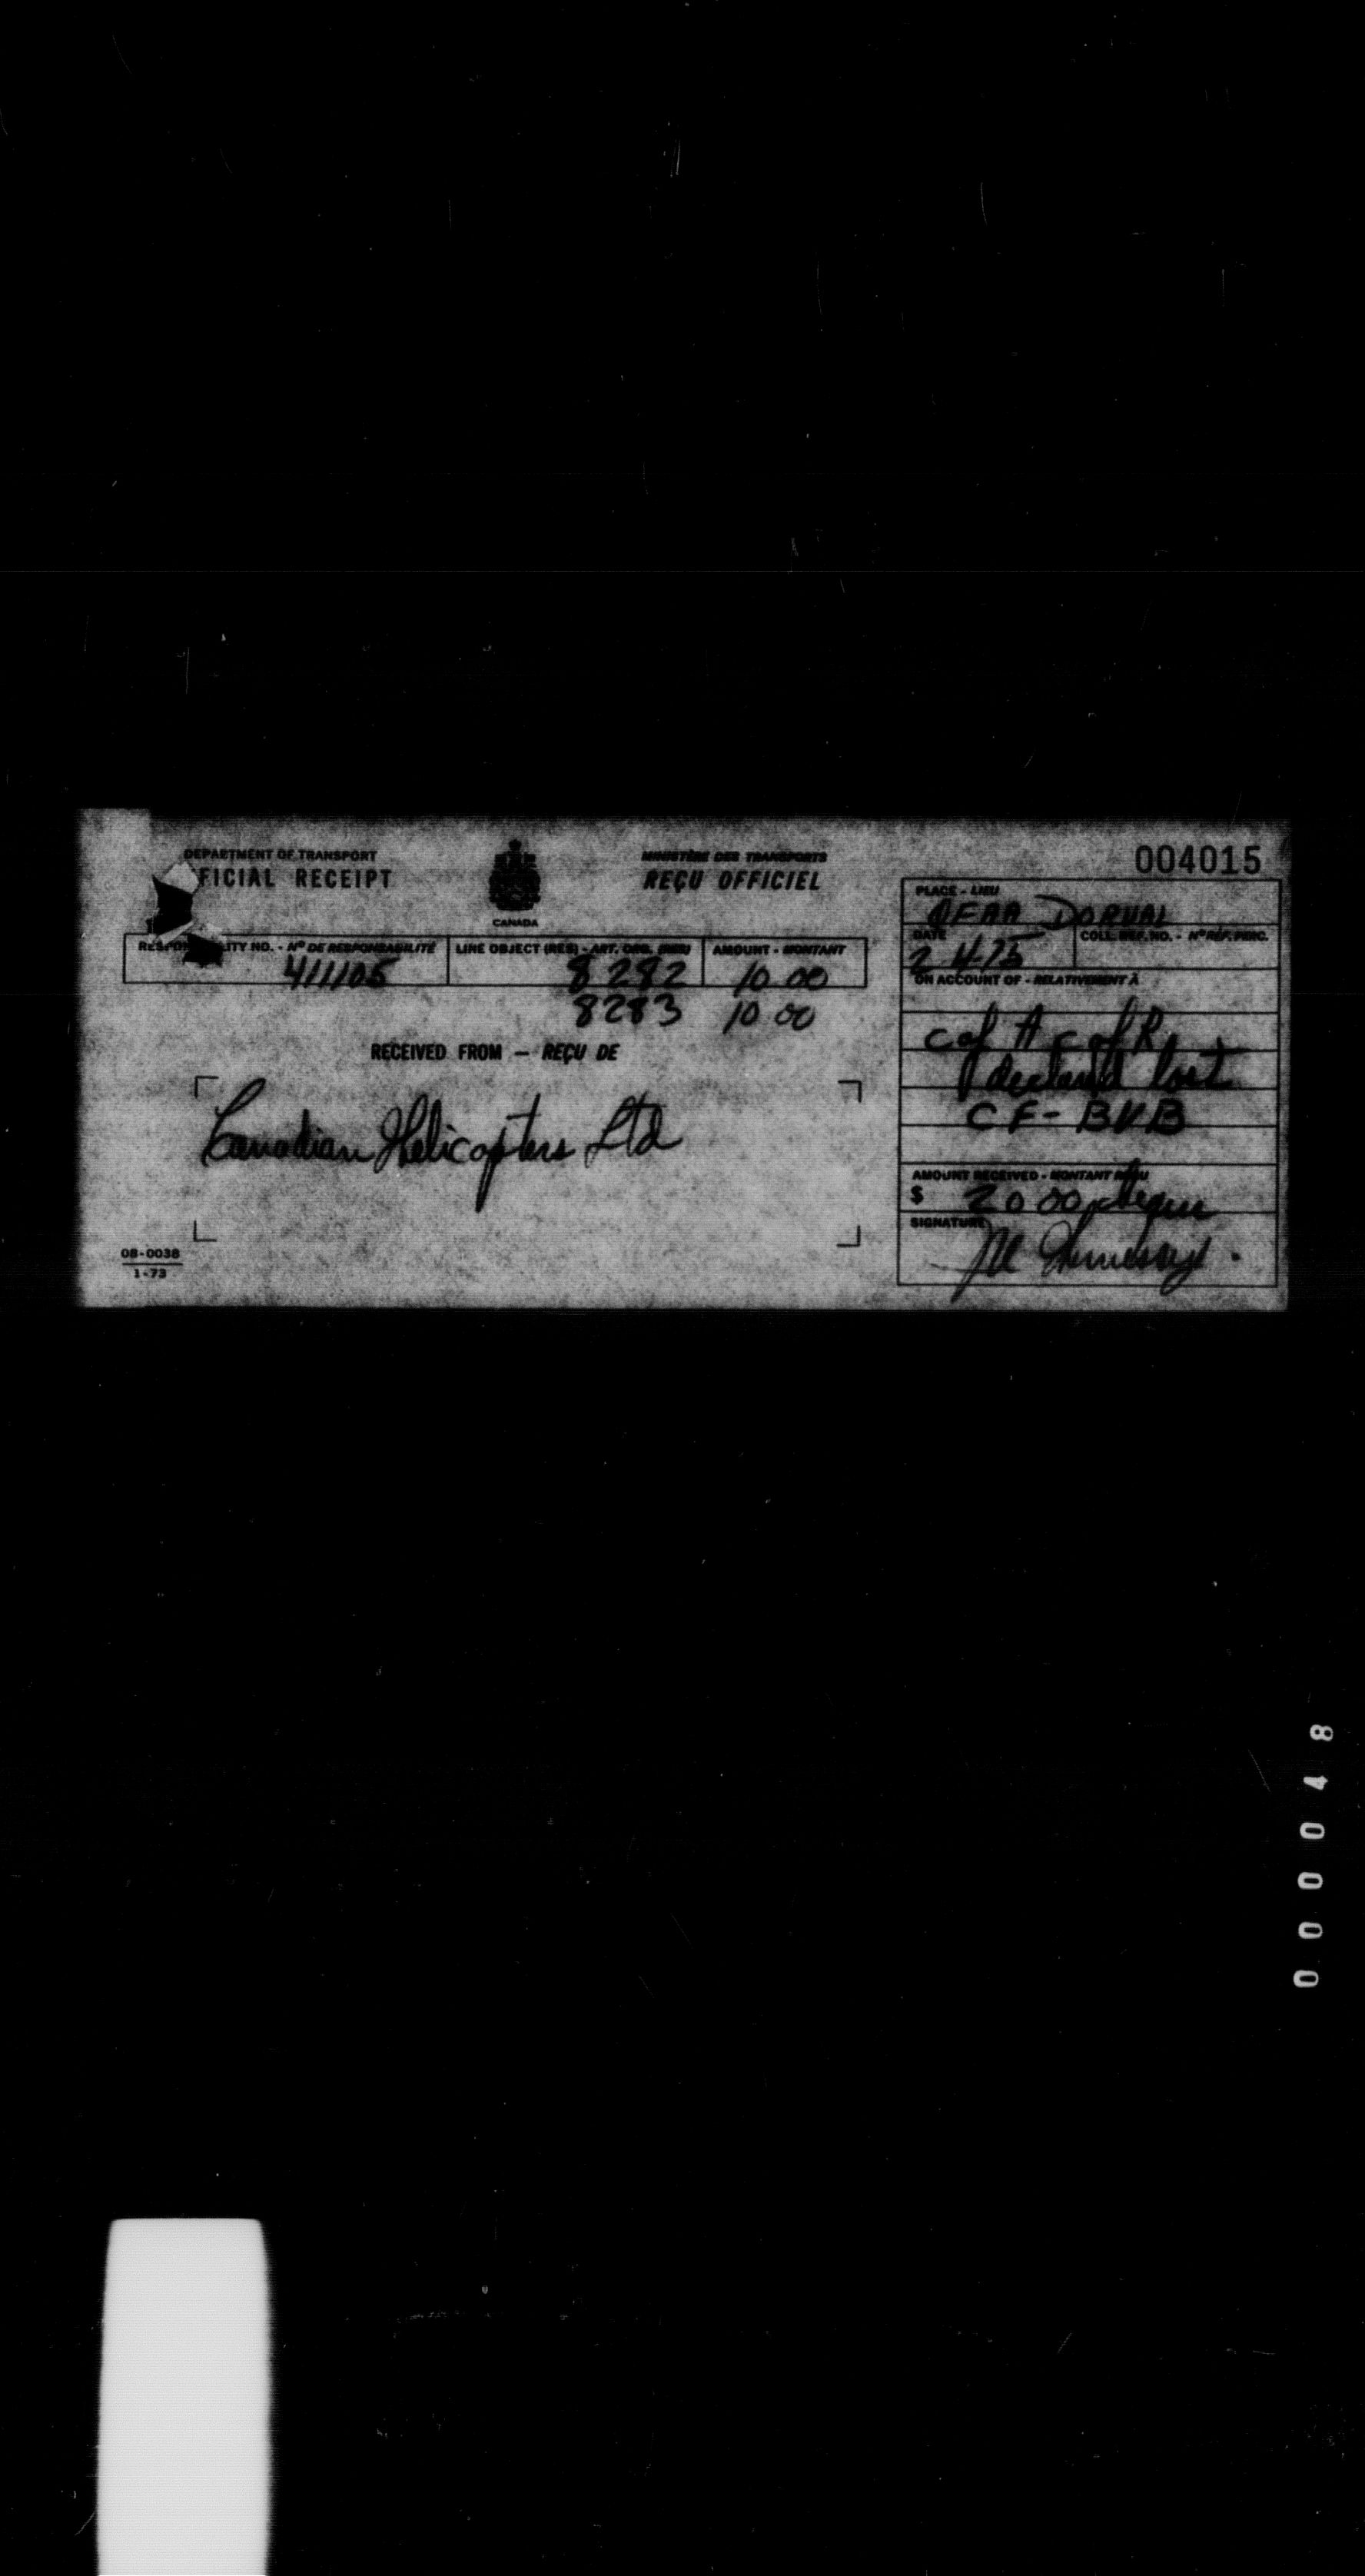 DEPARTMENT OF TRANSPORT
FICIAL RECEIPT
CANADA
MINISTÈRE DES TRANSPORTS
REÇU OFFICIEL
004015
PLACE - LIEU
DORVAL
DATE
2 4-75
COLL. REF. NO. - Nº RÉF. PERC.
RESPON LITY NO. - Nº DE RESPONSABILITÉ
411105
LINE OBJECT (RES) - ART. ORG. (RES)
8282
8283
AMOUNT - MONTANT
10 00
10 00
ON ACCOUNT OF - RELATIVEMENT À
C of A C of R
declared lost
CF-BVB
RECEIVED FROM — REÇU DE
Canadian Helicopters Ltd
AMOUNT RECEIVED - MONTANT REÇU
$ 20 00 cheque
SIGNATURE
Hennessy
08-0038
1-73
000048